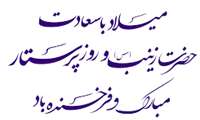 میلاد با سعادت
حضرت زینب (س) و روز پرستار
مبارک و فرخنده باد